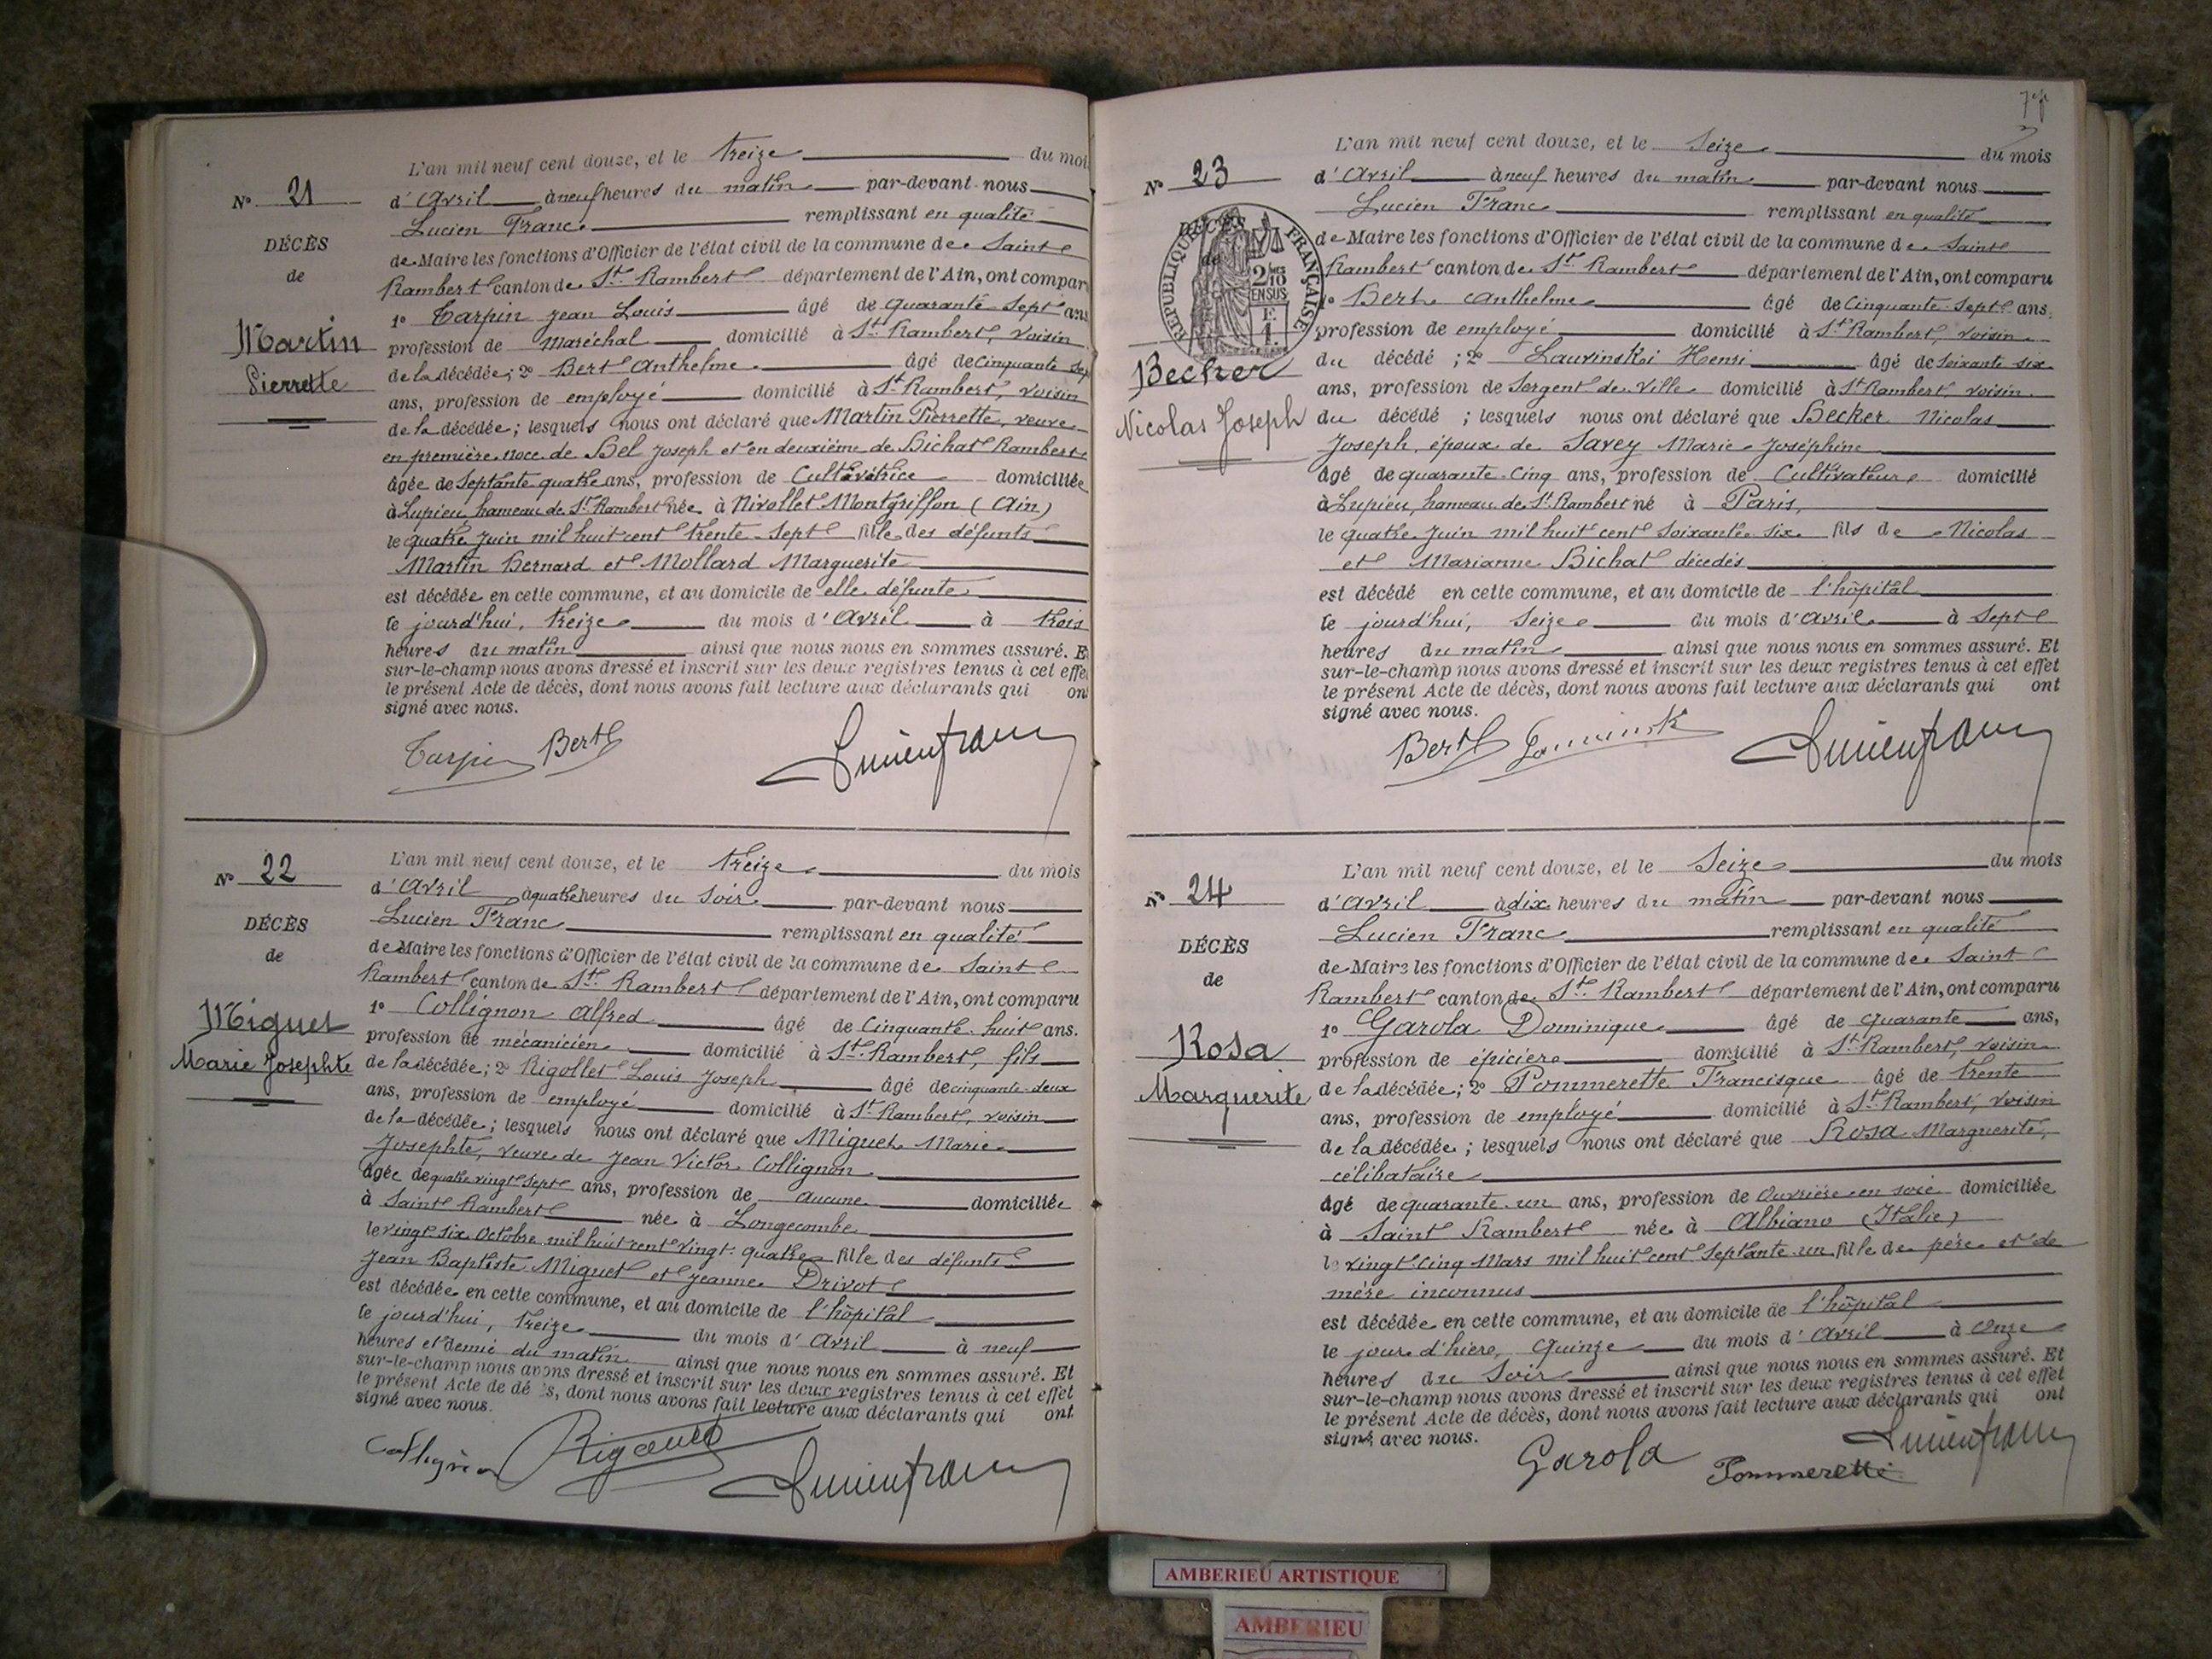 L'an mil neuf cent douze, et le treize du moi
N° 21
d'Avril à neuf heures du matin par-devant nous
Lucien Franc remplissant en qualité
DÉCÈS
de Maire les fonctions d'Officier de l'état civil de la commune de Saint
de
Rambert canton de St. Rambert département de l'Ain, ont compar
1° Tarpin Jean Louis âgé de quarante-sept ans
Martin
Pierrette
profession de Maréchal domicilié à St. Rambert, voisin
de la décédée; 2° Bert Anthelme âgé de cinquante sep
ans, profession de employé domicilié à St. Rambert, voisin
de la décédée; lesquels nous ont déclaré que Martin Pierrette, veuve
en première noce de Bel Joseph et en deuxième de Bichat Rambert
âgée de septante quatre ans, profession de Cultivatrice domiciliée
à Lupieu, hameau de St. Rambert née à Nivollet Montgriffon (Ain)
le quatre Juin mil huit cent trente-sept fille des défunts
Martin Bernard et Mollard Marguerite
est décédée en cette commune, et au domicile de elle défunte
le jourd'hui, treize du mois d'Avril à trois
heures du matin ainsi que nous nous en sommes assuré. E
sur-le-champ nous avons dressé et inscrit sur les deux registres tenus à cet effe
le présent Acte de décès, dont nous avons fait lecture aux déclarants qui ont
signé avec nous.
Tarpin Bert Lucien franc
L'an mil neuf cent douze, et le treize du mois
N° 22
d'Avril à quatre heures du soir par-devant nous
Lucien Franc remplissant en qualité
DÉCÈS
de Maire les fonctions d'Officier de l'état civil de la commune de Saint
de
Rambert canton de St. Rambert département de l'Ain, ont comparu
1° Collignon Alfred âgé de Cinquante-huit ans.
Miguet
Marie Josephte
profession de mécanicien domicilié à St. Rambert, fils
de la décédée; 2° Rigollet Louis Joseph âgé de cinquante-deux
ans, profession de employé domicilié à St. Rambert, voisin
de la décédée; lesquels nous ont déclaré que Miguet Marie
Josephte, veuve de Jean Victor Collignon
âgée de quatre vingt sept ans, profession de aucune domiciliée
à Saint Rambert née à Longecombe
le vingt-six Octobre mil huit cent vingt-quatre fille des défunts
Jean Baptiste Miguet et Jeanne Drivot
est décédée en cette commune, et au domicile de l'hôpital
le jourd'hui, treize du mois d'Avril à neuf
heures et demie du matin ainsi que nous nous en sommes assuré. Et
sur-le-champ nous avons dressé et inscrit sur les deux registres tenus à cet effet
le présent Acte de dé s, dont nous avons fait lecture aux déclarants qui ont
signé avec nous.
Collignon Lucien franc
L'an mil neuf cent douze, et le Seize du mois
N° 23
d'Avril à neuf heures du matin par-devant nous
Lucien Franc remplissant en qualité
DÉCÈS
de
RÉPUBLIQUE FRANÇAISE
2/10
EN SUS
de Maire les fonctions d'Officier de l'état civil de la commune de Saint
Rambert canton de St. Rambert département de l'Ain, ont comparu
1° Bert Anthelme âgé de Cinquante-Sept ans,
profession de employé domicilié à St. Rambert, voisin
Becker
Nicolas Joseph
du décédé; 2° Lauvinskoi Henri âgé de soixante six
ans, profession de Sergent de Ville domicilié à St. Rambert, voisin
du décédé; lesquels nous ont déclaré que Becker Nicolas
Joseph, époux de Savey Marie-Joséphine
âgé de quarante-cinq ans, profession de Cultivateur domicilié
à Lupieu, hameau de St. Rambert né à Paris,
le quatre Juin mil huit cent soixante-six fils de Nicolas
et Marianne Bichat décédés
est décédé en cette commune, et au domicile de l'hôpital
le jourd'hui, Seize du mois d'Avril à Sept
heures du matin ainsi que nous nous en sommes assuré. Et
sur-le-champ nous avons dressé et inscrit sur les deux registres tenus à cet effet
le présent Acte de décès, dont nous avons fait lecture aux déclarants qui ont
signé avec nous.
Bert Lucien franc
L'an mil neuf cent douze, et le Seize du mois
N° 24
d'Avril à dix heures du matin par-devant nous
Lucien Franc remplissant en qualité
DÉCÈS
de Maire les fonctions d'Officier de l'état civil de la commune de Saint
de
Rambert canton de St. Rambert département de l'Ain, ont comparu
1° Garola Dominique âgé de quarante ans,
Rosa
Marguerite
profession de épicier domicilié à St. Rambert, voisin
de la décédée; 2° Pommerette Francisque âgé de trente
ans, profession de employé domicilié à St. Rambert, voisin
de la décédée; lesquels nous ont déclaré que Rosa Marguerite,
célibataire
âgé de quarante-un ans, profession de Ouvrière en soie domiciliée
à Saint Rambert née à Albiano (Italie)
le vingt-cinq Mars mil huit cent septante-un fille de père et de
mère inconnus
est décédée en cette commune, et au domicile de l'hôpital
le jour d'hier, quinze du mois d'Avril à Onze
heures du Soir ainsi que nous nous en sommes assuré. Et
sur-le-champ nous avons dressé et inscrit sur les deux registres tenus à cet effet
le présent Acte de décès, dont nous avons fait lecture aux déclarants qui ont
signé avec nous.
Garola Pommerette Lucien franc
AMBERIEU ARTISTIQUE
AMBERIEU